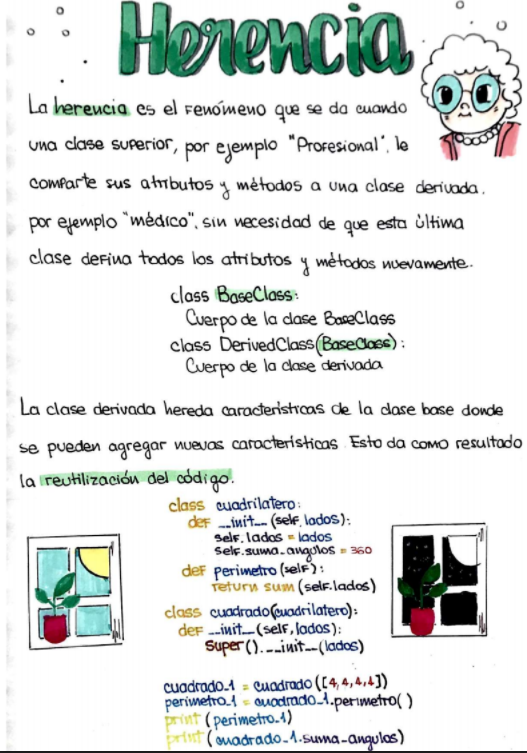 Herencia
La herencia es el fenómeno que se da cuando
una clase superior, por ejemplo "Profesional", le
comparte sus atributos y métodos a una clase derivada,
por ejemplo "médico", sin necesidad de que esta última
clase defina todos los atributos y métodos nuevamente.
class BaseClass:
Cuerpo de la clase BaseClass
class DerivedClass(BaseClass):
Cuerpo de la clase derivada
La clase derivada hereda características de la clase base donde
se pueden agregar nuevas características. Esto da como resultado
la reutilización del código.
class cuadrilatero:
def __init__(self, lados):
self.lados = lados
self.suma_angulos = 360
def perimetro(self):
return sum(self.lados)
class cuadrado(cuadrilatero):
def __init__(self, lados):
super().__init__(lados)
cuadrado_1 = cuadrado([4,4,4,4])
perimetro_1 = cuadrado_1.perimetro()
print(perimetro_1)
print(cuadrado_1.suma_angulos)